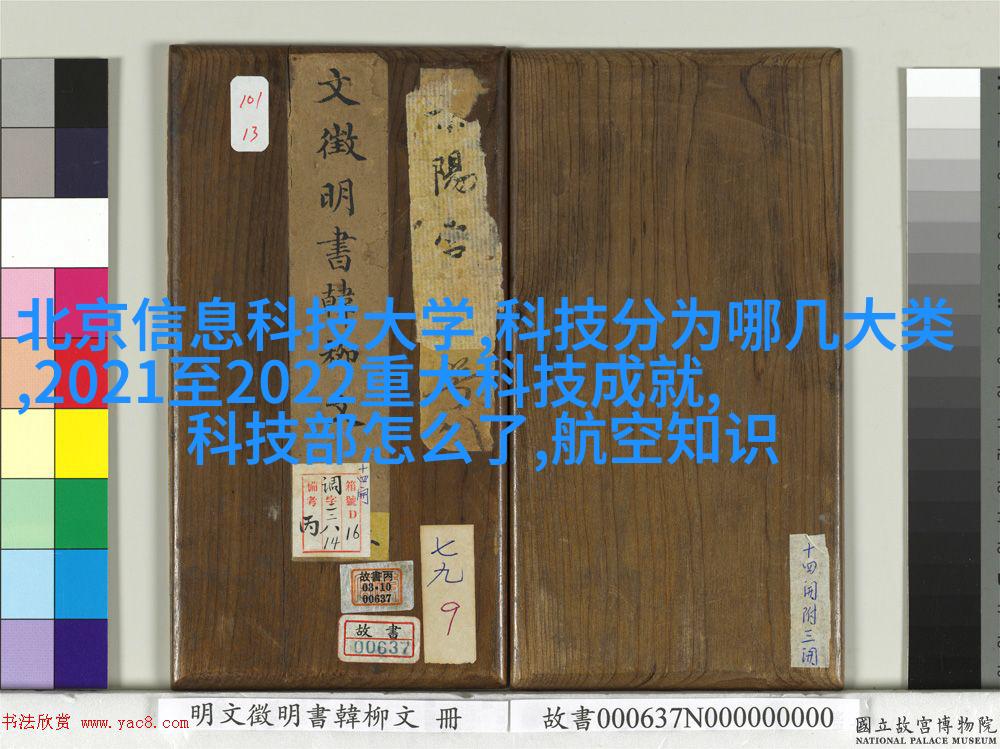 101
13
文徵明書韓柳文
陽宫
北京信息科技大学,科技分为哪几大类
,2021至2022重大科技成就,
科技部怎么了,航空知识
十四開
備考
丙
调字三八14
箱號D16
故書丙
03·10
00637
故書
00637
七九
9
十四開附三開
明文徵明書韓柳文 冊
故書000637N000000000
國立故宮博物院
NATIONAL PALACE MUSEUM
书法欣赏 www.yac8.com